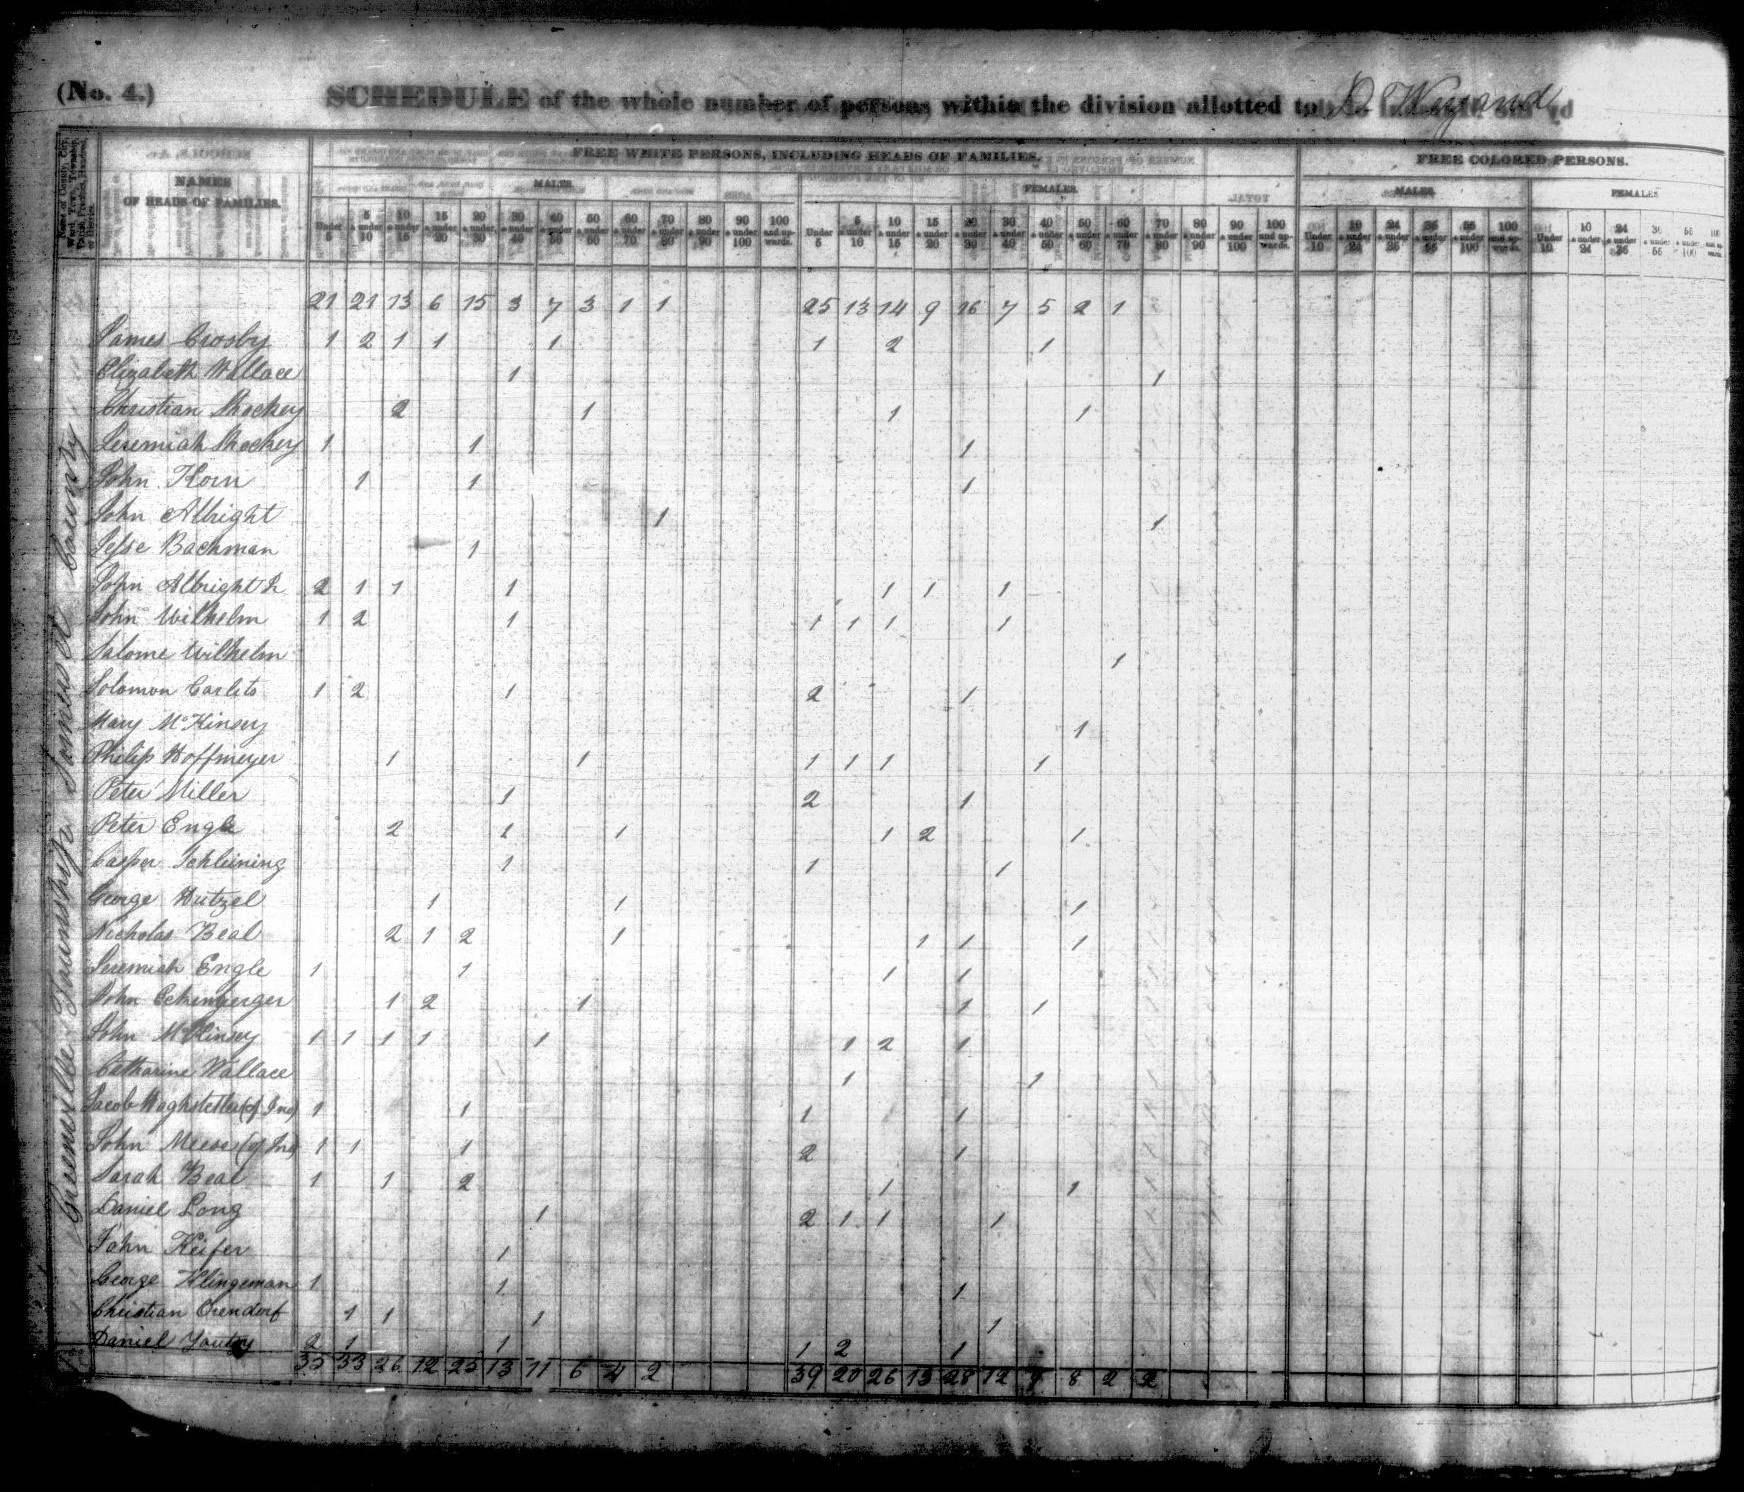 (No. 4.)
SCHEDULE of the whole number of persons within the division allotted to D. Weyand by
Name of County, City, Ward, Town, Township, Parish, Precinct, Hundred, or District.
NAMES OF HEADS OF FAMILIES.
FREE WHITE PERSONS, INCLUDING HEADS OF FAMILIES.
FREE COLORED PERSONS.
MALES.
FEMALES.
MALES.
FEMALES
Under 5
5 & under 10
10 & under 15
15 & under 20
20 & under 30
30 & under 40
40 & under 50
50 & under 60
60 & under 70
70 & under 80
80 & under 90
90 & under 100
100 and upwards.
Under 5
5 & under 10
10 & under 15
15 & under 20
20 & under 30
30 & under 40
40 & under 50
50 & under 60
60 & under 70
70 & under 80
80 & under 90
90 & under 100
100 and upwards.
Under 10
10 & under 24
24 & under 36
36 & under 55
55 & under 100
100 and upwards.
Under 10
10 & under 24
24 & under 36
36 & under 55
55 & under 100
100 and upwards
Greenville Township Somerset County
21 21 13 6 15 3 7 3 1 1 25 13 14 9 16 7 5 2 1
James Crosby 1 2 1 1 1 1 2 1
Elizabeth Wallace 1 1
Christian Shockey 2 1 1 1
Jeremiah Shockey 1 1 1
John Korn 1 1 1
John Albright 1 1
Jesse Bachman 1
John Albright Jr 2 1 1 1 1 1 1
John Wilhelm 1 2 1 1 1 1 1
Salome Wilhelm 1
Solomon 1 2 1 2 1
Mary McKinsey 1
Philip Hoffmeyer 1 1 1 1 1 1
Peter Miller 1 2 1
Peter Engle 2 1 1 1 2 1
Casper Schleining 1 1 1
George Hutzel 1 1 1
Nicholas Beal 2 1 2 1 1 1 1
Jeremiah Engle 1 1 1 1
John 1 2 1 1 1
John McKinsey 1 1 1 1 1 1 2 1
Catharine Wallace 1 1
Jacob (of Jno) 1 1 1 1
John Meese (of Jno) 1 1 1 2 1
Sarah Beal 1 1 2 1 1
Daniel Long 1 2 1 1 1
John Keifer 1
George Klingeman 1 1 1
Christian Orendorf 1 1 1 1
Daniel Youtzy 2 1 1 1 2 1
35 33 26 12 25 13 11 6 4 2 39 20 26 13 28 12 9 8 2 2